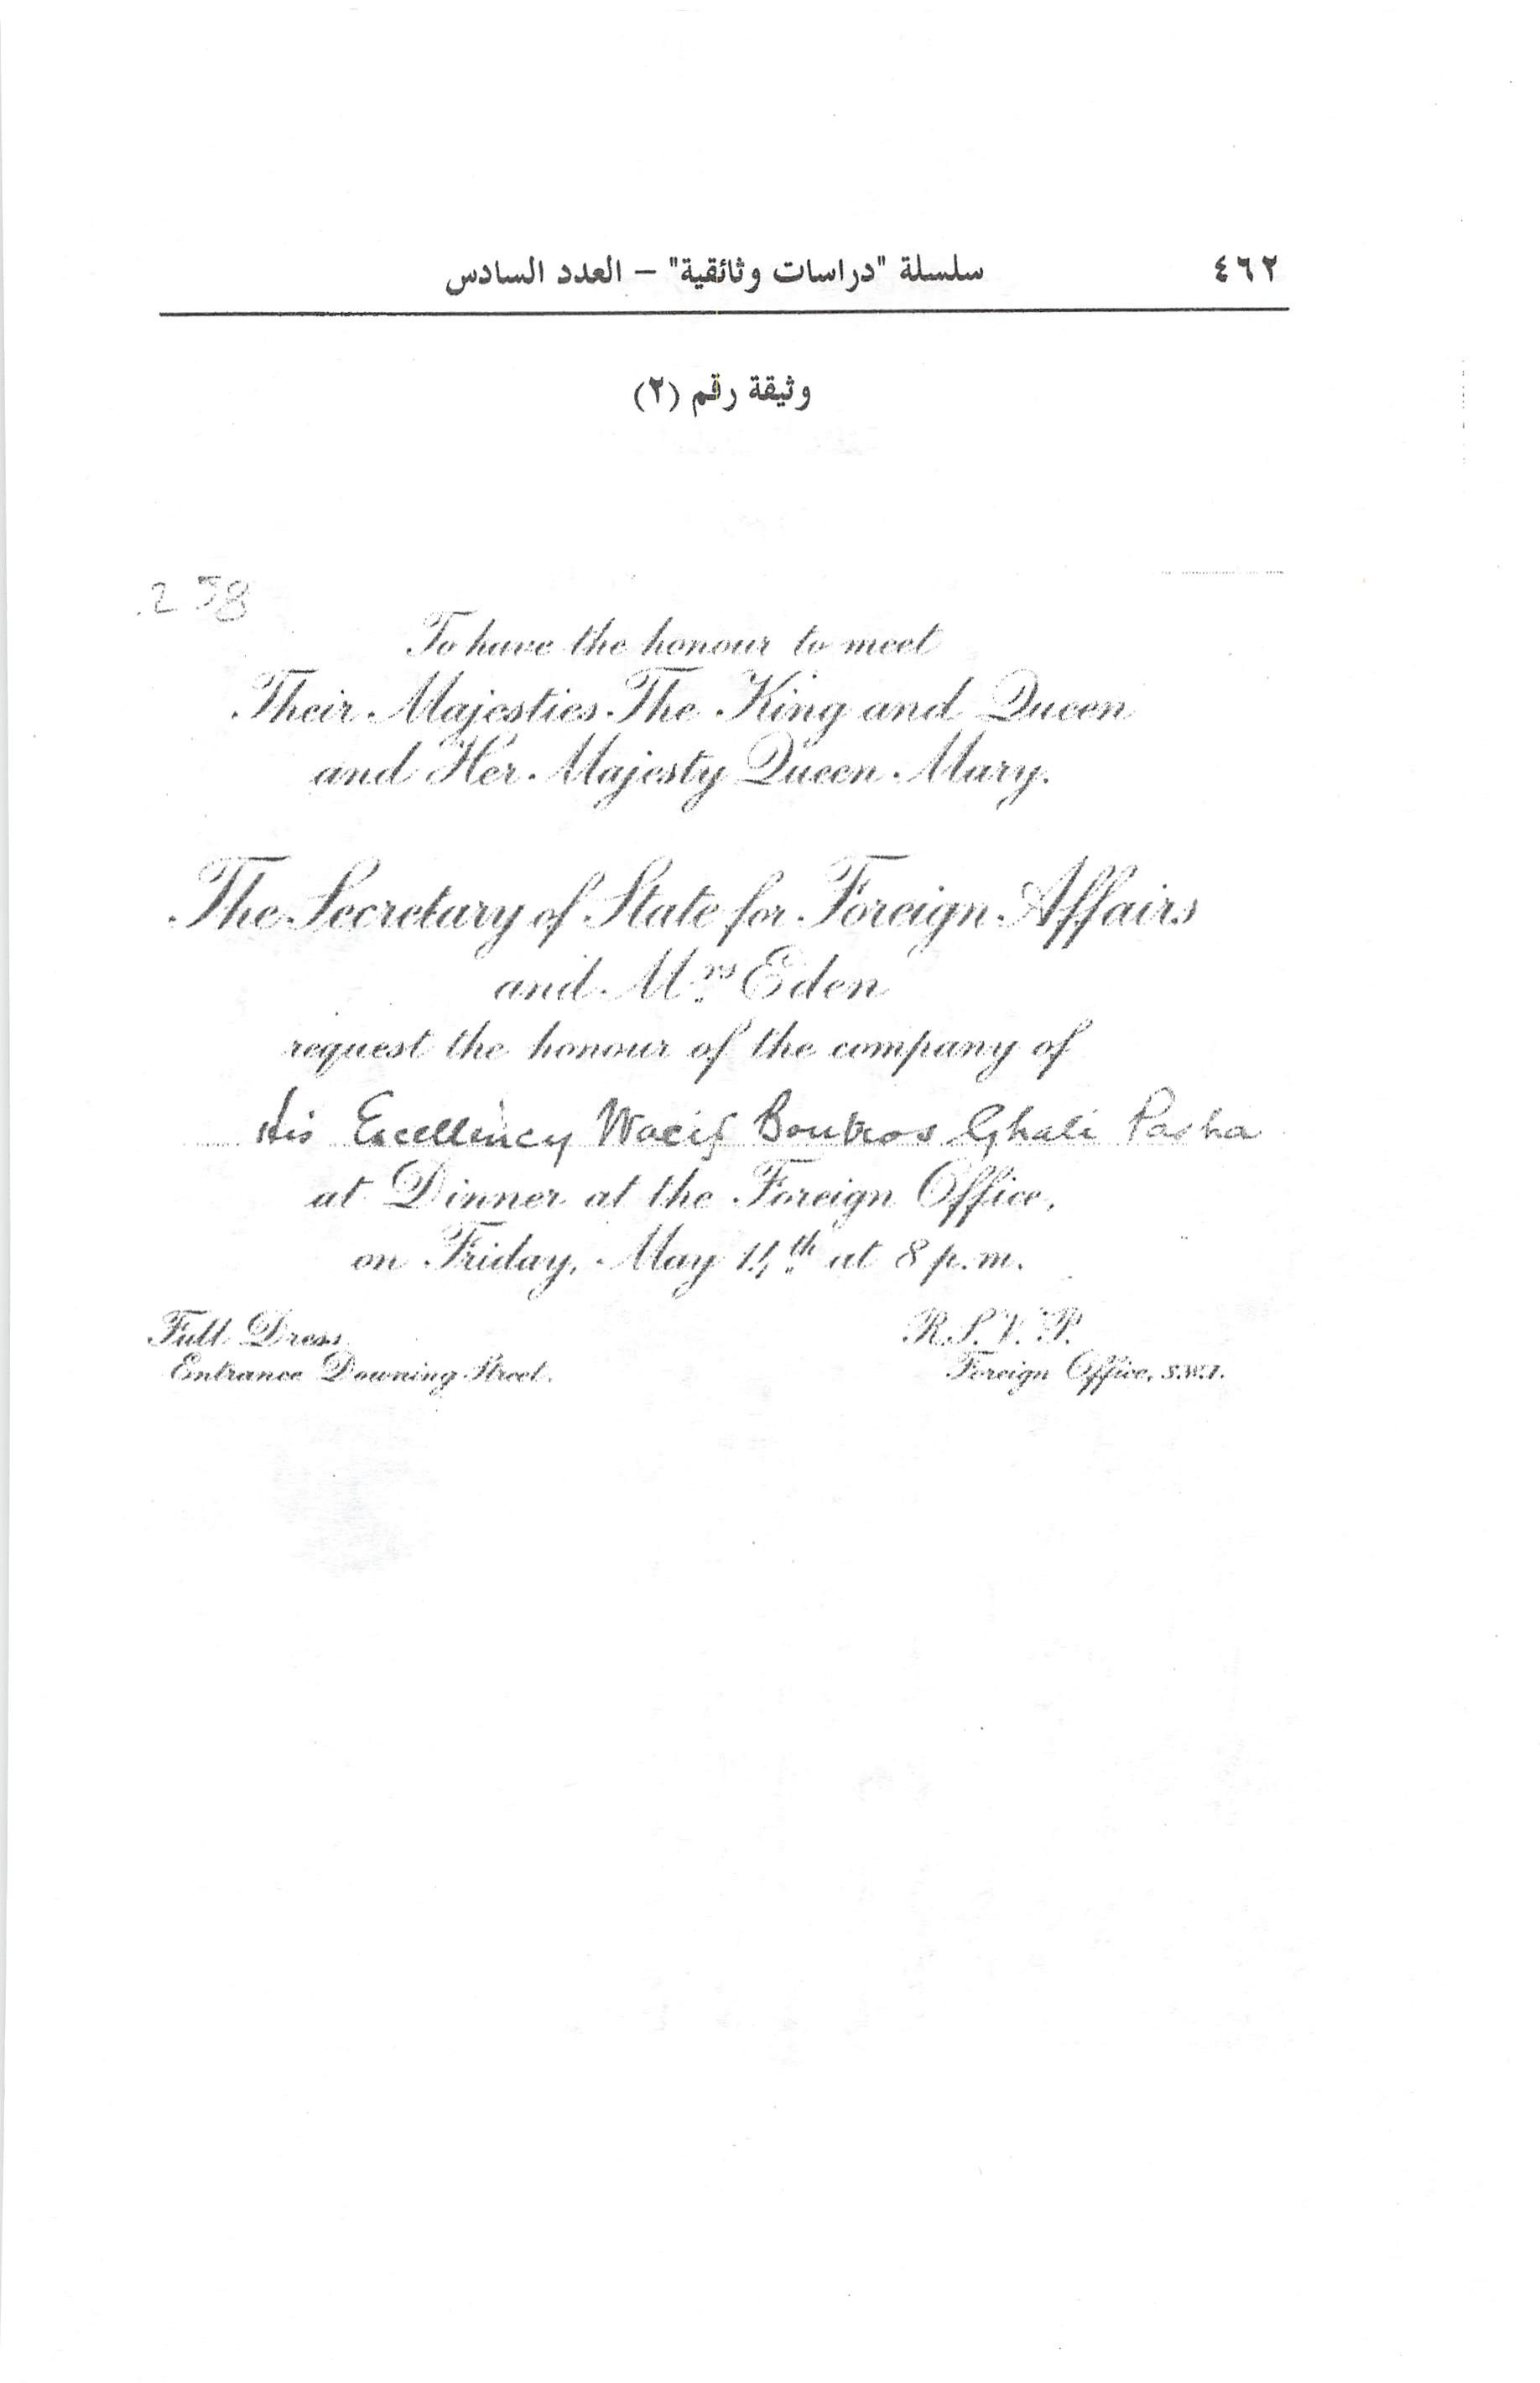 ٤٦٢ سلسلة "دراسات وثائقية" – العدد السادس
وثيقة رقم (٢)
258
To have the honour to meet
Their Majesties The King and Queen
and Her Majesty Queen Mary.
The Secretary of State for Foreign Affairs
and Mrs Eden
request the honour of the company of
His Excellency Wacif Boutros Ghali Pasha
at Dinner at the Foreign Office,
on Friday, May 14th at 8 p.m.
Full Dress R.S.V.P.
Entrance Downing Street. Foreign Office, S.W.1.